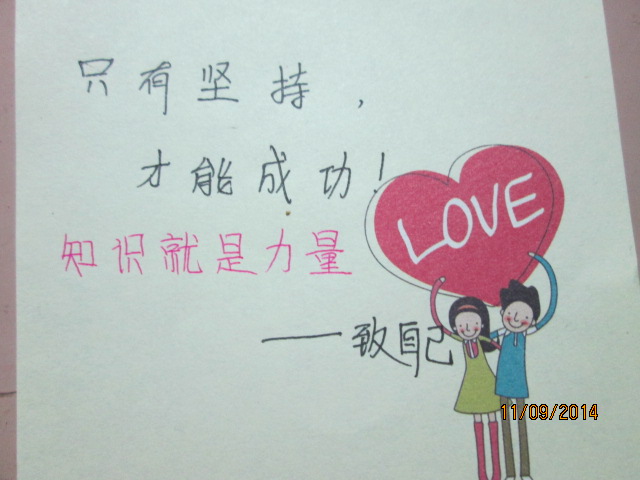 只有坚持，
才能成功！
LOVE
知识就是力量
——致自己
11/09/2014